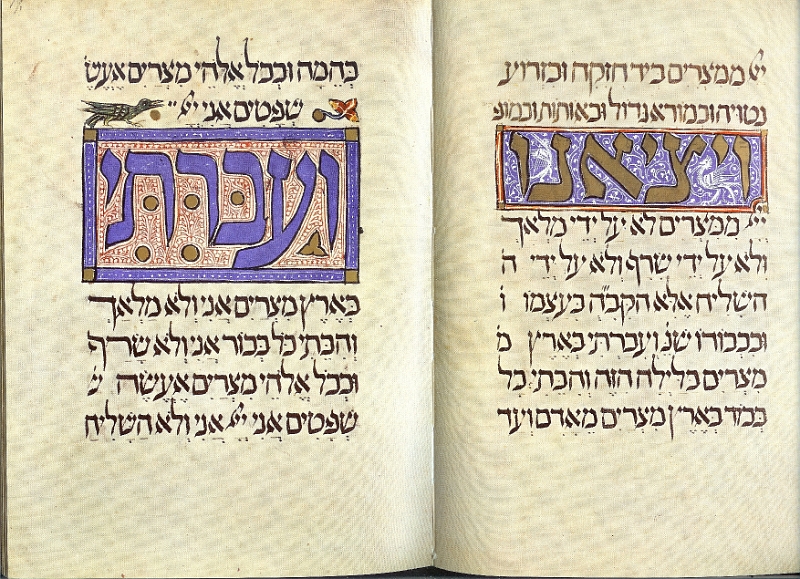 יי ממצרים ביד חזקה ובזרוע
נטויה ובמורא גדול ובאותות ובמופ
ויציאנו
יי ממצרים לא על ידי מלאך
ולא על ידי שרף ולא על ידי ה
השליח אלא הקב״ה בעצמו ו
ובכבודו שנ׳ ועברתי בארץ מ
מצרים בלילה הזה והכתי כל
בכור בארץ מצרים מאדם ועד
בהמה ובכל אלהי מצרים אעש
שפטים אני יי
ועברתי
בארץ מצרים אני ולא מלאך
והכתי כל בכור אני ולא שרף
ובכל אלהי מצרים אעשה ש
שפטים אני יי אני ולא השליח